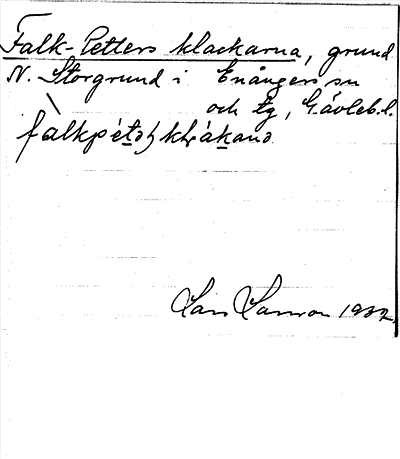 Falk-Petters klackarna, grund
N. Storgrund i Enångers sn
och tg, Gävleb.l.
Lars Larsson 1937.